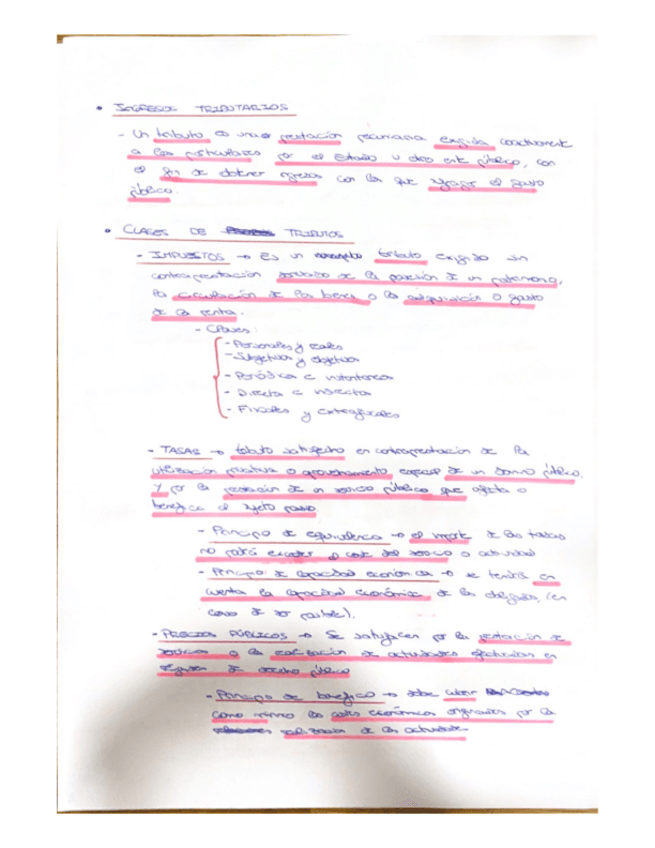 • INGRESOS TRIBUTARIOS
- Un tributo es una prestación pecuniaria exigida coactivamente
a los particulares por el Estado u otro ente público, con
el fin de obtener ingresos con los que sufragar el gasto
público.
• CLASES DE TRIBUTOS
- IMPUESTOS → Es un tributo exigido sin
contraprestación derivado de la posesión de un patrimonio,
la circulación de los bienes o la adquisición o gasto
de la renta.
- Clases:
- Personales y reales
- Subjetivos y objetivos
- Periódicos e instantáneos
- Directos e indirectos
- Fiscales y extrafiscales
- TASAS → tributo satisfecho en contraprestación de la
utilización privativa o aprovechamiento especial de un domino público.
Y por la prestación de un servicio público que afecta o
beneficia al sujeto pasivo.
- Principio de equivalencia → el importe de las tasas
no podrá exceder el coste del servicio o actividad
- Principio de capacidad económica → se tendrá en
cuenta la capacidad económica de los obligados, (en
caso de ser posible).
- PRECIOS PÚBLICOS → Se satisfacen por la prestación de
servicios o la realización de actividades efectuadas en
régimen de derecho público
- Principio de beneficio → debe cubrir
como mínimo los costes económicos originados por la
realización de las actividades